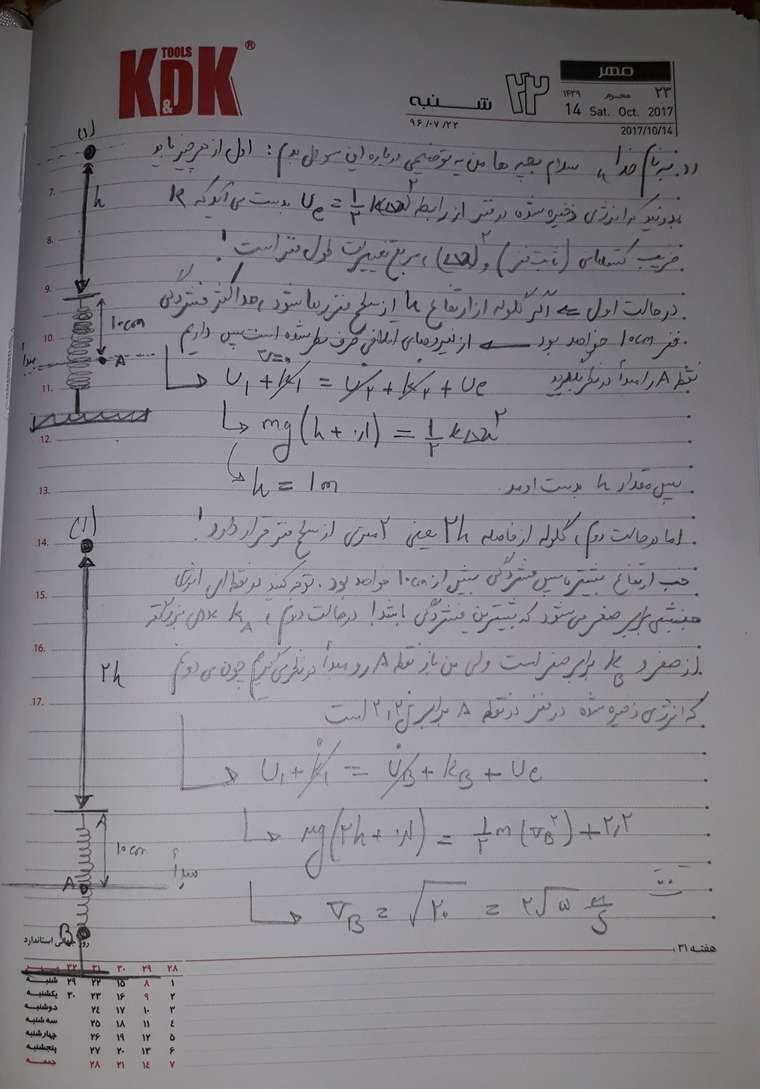 KDK TOOLS ®
&
مهر
۲۳ محرم ۱۴۳۹
14 Sat. Oct. 2017
2017/10/14
۲۲
شنبه
۹۶/۰۷/۲۲
(۱)
به نام خدا، سلام بچه ها من یه توضیحی درباره این سوال بدم: اول از هر چیز باید
h
7.
بدونید که انرژی ذخیره شده در فنر از رابطه Ue = ½ kΔx² بدست می آید که k
8.
ضریب کشسانی (ثابت فنر) و (Δx)²، مربع تغییرات طول فنر است!
9.
در حالت اول ⇐ اگر گلوله از ارتفاع h از سطح فنر رها شود، حداکثر فشردگی
10cm
10.
فنر 10cm خواهد بود ⇐ از نیروهای اتلافی صرف نظر شده است پس داریم
مبدأ
A
نقطه A را مبدأ در نظر بگیرید
v=0
U₁ + K₁ = U₂ + K₂ + Ue
11.
mg(h + ۰/۱) = ½ kΔx²
12.
پس مقدار h بدست اومد.
h = 1m
13.
(۱)
14.
اما در حالت دوم، گلوله از فاصله ۲h یعنی ۲ متری از سطح فنر قرار دارد!
خب ارتفاع بیشتر، پس فشردگی بیش از 10cm خواهد بود. توجه کنید در نقطه ای انرژی
15.
جنبشی برابر صفر می شود که بیشترین فشردگی در حالت دوم، K_A بزرگتر
16.
از صفر و K_B برابر صفر است ولی من باز نقطه A رو مبدأ در نظر می گیرم چون می دونم
۲h
17.
که انرژی ذخیره شده در فنر در نقطه A برابر ۲٫۲ است
U₁ + K₁ = U_B + K_B + Ue
mg(۲h + ۰/۱) = ½ m(V_B²) + ۲٫۲
A
10cm
مبدأ
A
V_B = √۲۰ = ۲√۵ m/s
B
روز جهانی استاندارد
هفته ۳۱
مهر ۲۸ ۲۹ ۳۰ ۳۱ ۳۲
شنبه ۱ ۸ ۱۵ ۲۲ ۲۹
یکشنبه ۲ ۹ ۱۶ ۲۳ ۳۰
دوشنبه ۳ ۱۰ ۱۷ ۲۴
سه شنبه ۴ ۱۱ ۱۸ ۲۵
چهارشنبه ۵ ۱۲ ۱۹ ۲۶
پنجشنبه ۶ ۱۳ ۲۰ ۲۷
جمعه ۷ ۱۴ ۲۱ ۲۸